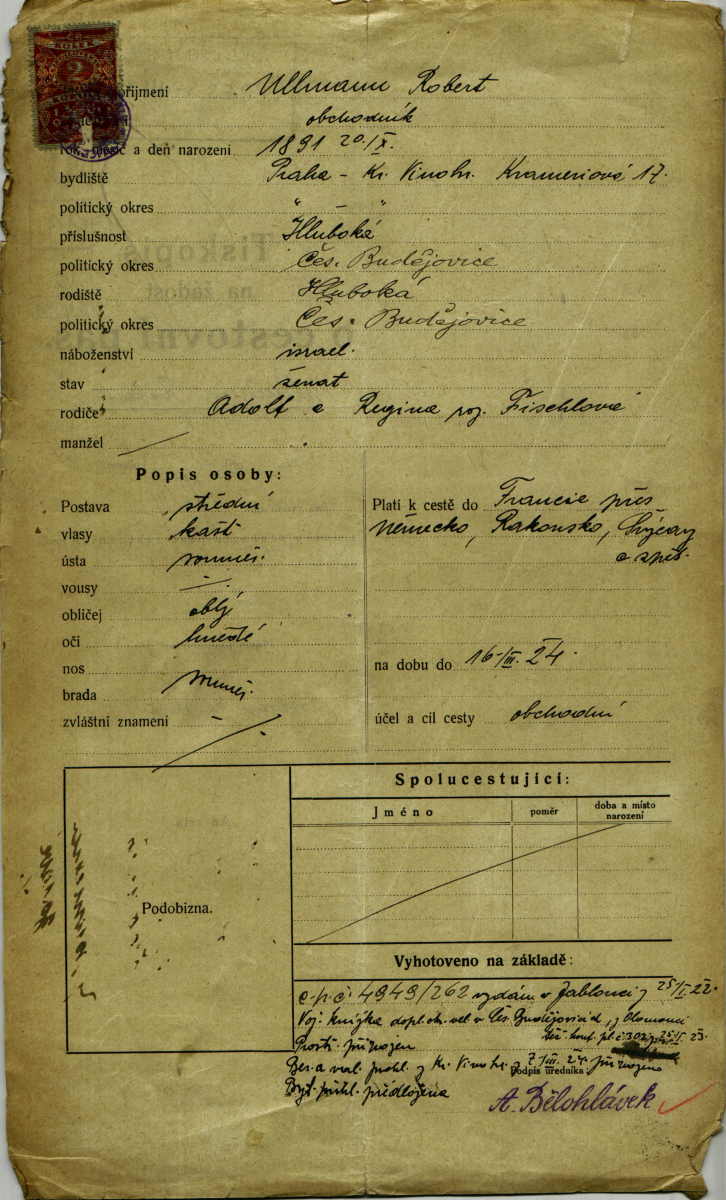 2
příjmení Ullmann Robert
obchodník
rok, měsíc a deň narození 1891 20./X.
bydliště Praha - Kr. Vinohr. Krameriová 17.
politický okres " — "
příslušnost Hluboká
politický okres Čes. Budějovice
rodiště Hluboká
politický okres Čes. Budějovice
náboženství israel.
stav ženat
rodiče Adolf a Regina roz. Fischlová
manžel
Popis osoby:
Postava střední
vlasy kašt
ústa souměr.
vousy —
obličej oblý
oči hnědé
nos
brada souměr.
zvláštní znamení —
Platí k cestě do Francie přes
Německo, Rakousko, Švýcary
a zpět.
na dobu do 16./III. 24.
účel a cíl cesty obchodní
Podobizna.
Spolucestující:
Jméno poměr doba a místo narození
Vyhotoveno na základě:
c. p. č. 4949/262 vydán v Jablonci 25/I. 22.
Voj. knížka dopl. ok. vel v Čes. Budějovicích, z Olomouci
Ber. a mag. prohl. z Kr. Vinohr. z 7./III. 24.
podpis úředníka
Byt. přihl. předložena
A. Bělohlávek